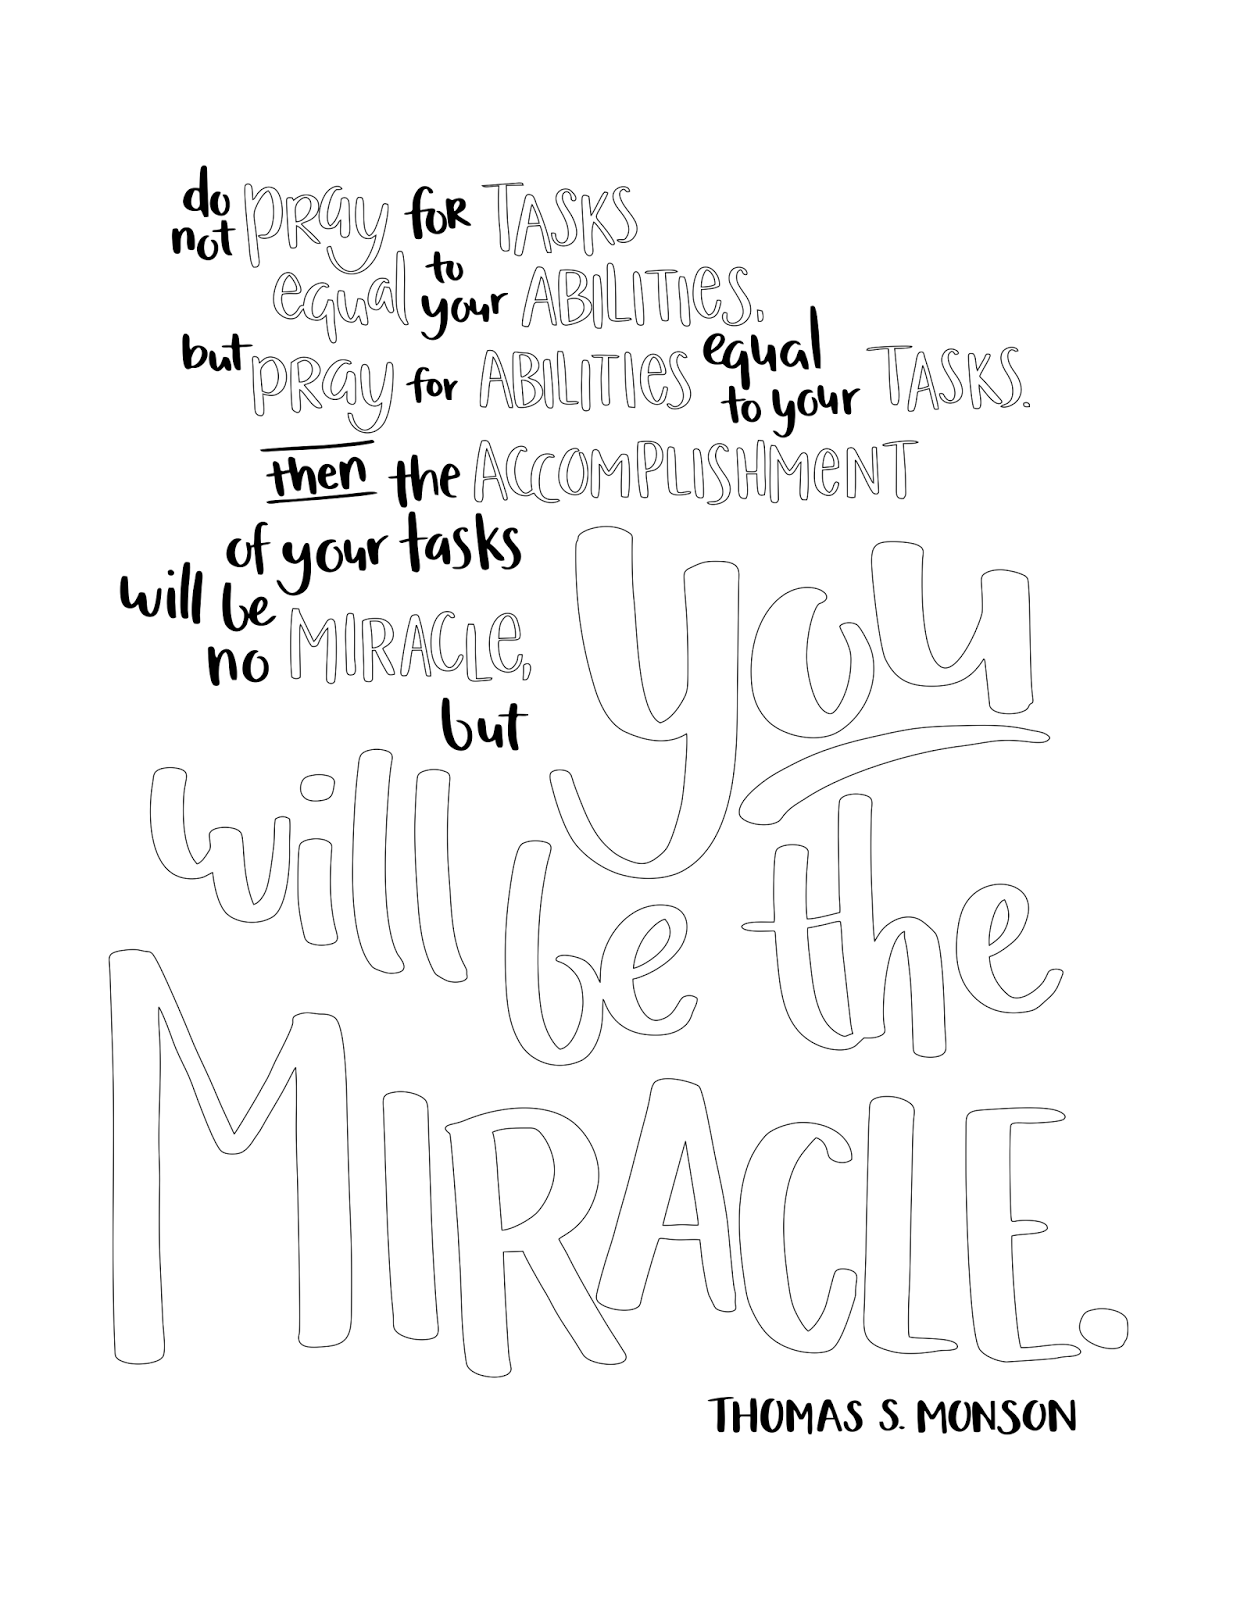 do not pray for TASKS
equal to your ABILITIES,
but pray for ABILITIES equal to your TASKS.
then the ACCOMPLISHMENT
of your tasks
will be
no MIRACLE,
but you
will be the
MIRACLE.
THOMAS S. MONSON